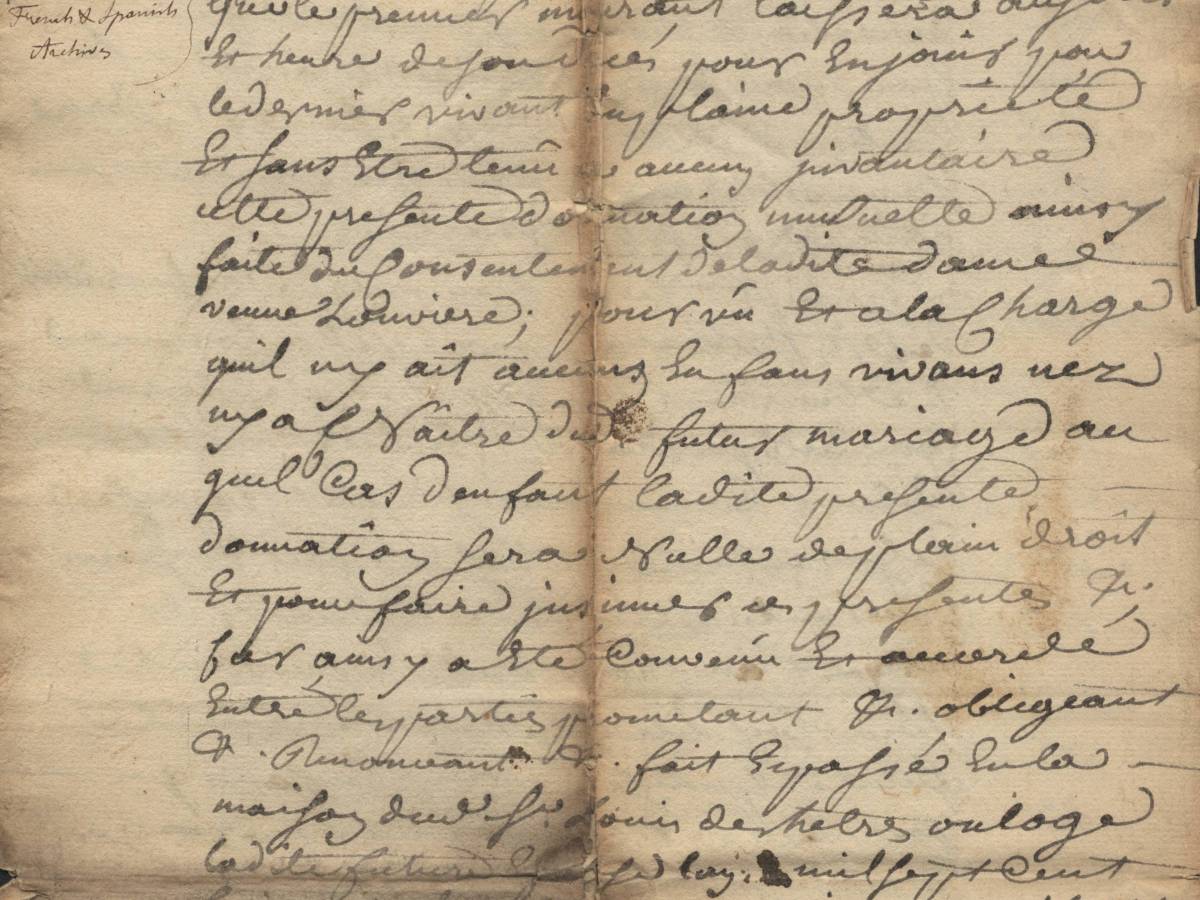 French & Spanish
Archives
que le premier mourant laissera au jour
Et heure de son decés pour En jouir par
le dernier vivant En plaine proprieté
Et sans Etre tenu de aucun jnvantaire
cette presente donnation mutuelle ainsy
faite du Consentement de ladite dame
veuve Louviere; pourvû Et a la Charge
quil ny aît aucuns Enfans vivans nez
ny a Naître dud. futur mariage au
quel Cas d'enfant ladite presente
donnatîon sera Nulle de plain droît
Et pour faire jnsinuer ces presentes &c.
Car ainsy a Eté Convenu Et accordé
Entre les parties prometant &c. obligeant
&c. Renonceant &c. fait Et passé En la
maison dud. Sr. Louis deshetres ou loge
ladite future Epouse lan mil sept Cent